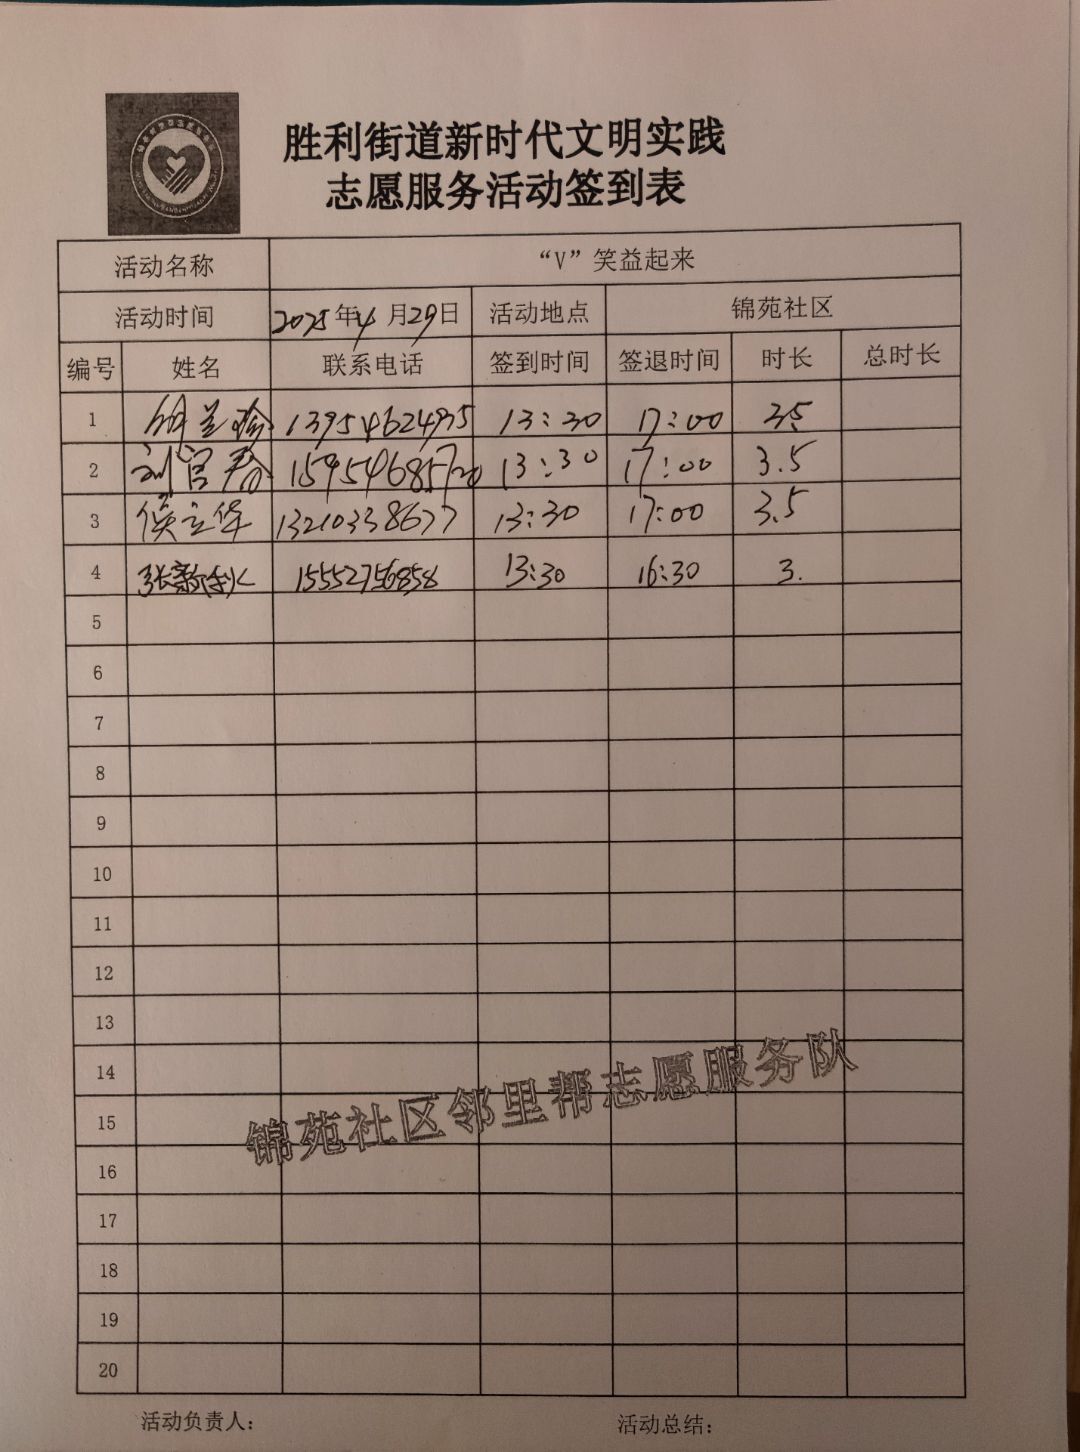 胜利街道新时代文明实践
志愿服务活动签到表
活动名称 “V”笑益起来
活动时间 2025年4月29日 活动地点 锦苑社区
编号 姓名 联系电话 签到时间 签退时间 时长 总时长
1 13954624975 13:30 17:00 3.5
2 刘官春 15954685720 13:30 17:00 3.5
3 侯立华 13210338677 13:30 17:00 3.5
4 张新利 15552756858 13:30 16:30 3.
5
6
7
8
9
10
11
12
13
14
15
锦苑社区邻里帮志愿服务队
16
17
18
19
20
活动负责人: 活动总结: